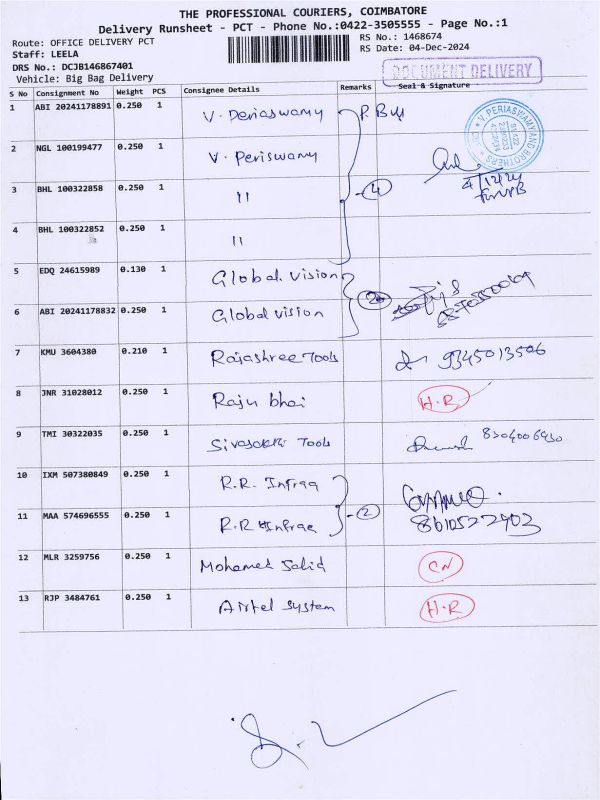 THE PROFESSIONAL COURIERS, COIMBATORE
Delivery Runsheet - PCT - Phone No.:0422-3505555 - Page No.:1
Route: OFFICE DELIVERY PCT
RS No.: 1468674
Staff: LEELA
RS Date: 04-Dec-2024
DRS No.: DCJB146867401
DOCUMENT DELIVERY
Vehicle: Big Bag Delivery
S No Consignment No Weight PCS Consignee Details Remarks Seal & Signature
1 ABI 20241178891 0.250 1 V. Periaswamy
V. PERIASWAMY AND BROTHERS
2 NGL 100199477 0.250 1 V. Periswamy
4/12/24
3 BHL 100322858 0.250 1 " 4
4 BHL 100322852 0.250 1 "
5 EDQ 24615989 0.130 1 Global vision
6 ABI 20241178832 0.250 1 Global vision 2
7 KMU 3604380 0.210 1 Rajashree Tools 9345013506
8 JNR 31028012 0.250 1 Raju bhai H.R
9 TMI 30322035 0.250 1 Sivasakthi Tools 8304006930
10 IXM 507380849 0.250 1 R.R. Infraa
11 MAA 574696555 0.250 1 R.R Infraa 2 8610522903
12 MLR 3259756 0.250 1 Mohamed Solid CN
13 RJP 3484761 0.250 1 Airtel system H.R